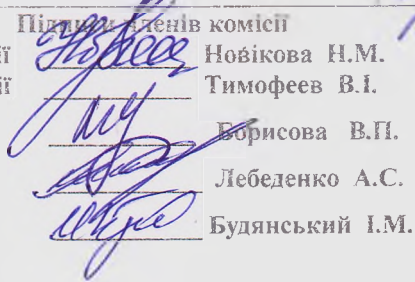 Підписи членів комісії
ії Новікова Н.М.
ії Тимофеев В.І.
Борисова В.П.
Лебеденко А.С.
Будянський І.М.